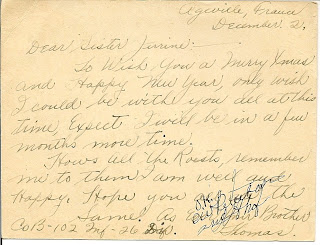 Ageville, France
December 2.
Dear Sister Jurine:-
To Wish You a Merry Xmas
and Happy New Year, only wish
I could be with you all at this
time. Expect I will be in a few
months more time.
Hows all the Roosts, remember
me to them. I am well and
Happy. Hope you the
Same. As Ever your Brother
Co B-102 Inf-26 Thomas.
O.K.